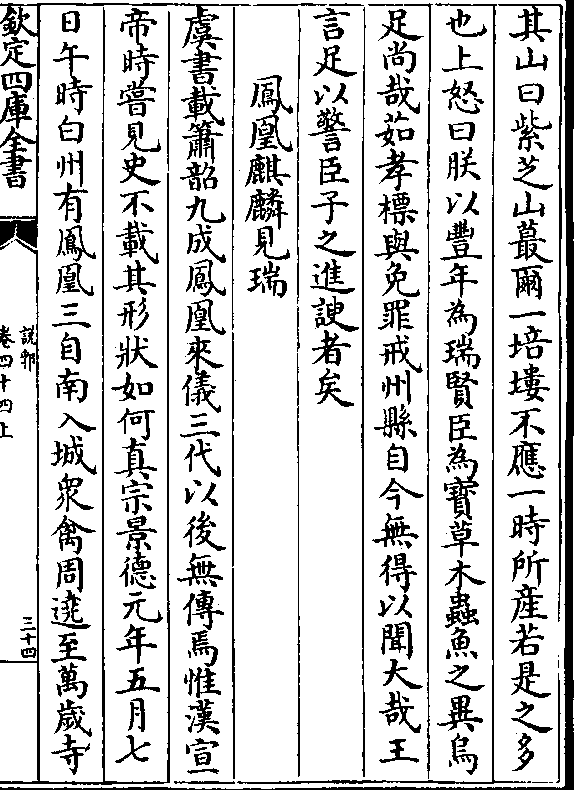 其山曰紫芝山蕞爾一培塿不應一時所産若是之多
也上怒曰朕以豐年為瑞賢臣為寳草木蟲魚之異烏
足尚哉茹孝標與免罪戒州縣自今無得以聞大哉王
言足以警臣子之進諛者矣
鳳凰麒麟見瑞
虞書載簫韶九成鳳凰來儀三代以後無傳焉惟漢宣
帝時嘗見史不載其形狀如何真宗景德元年五月七
日午時白州有鳳凰三自南入城衆禽周遶至萬歲寺
欽定四庫全書
說郛
卷四十四上
三十四